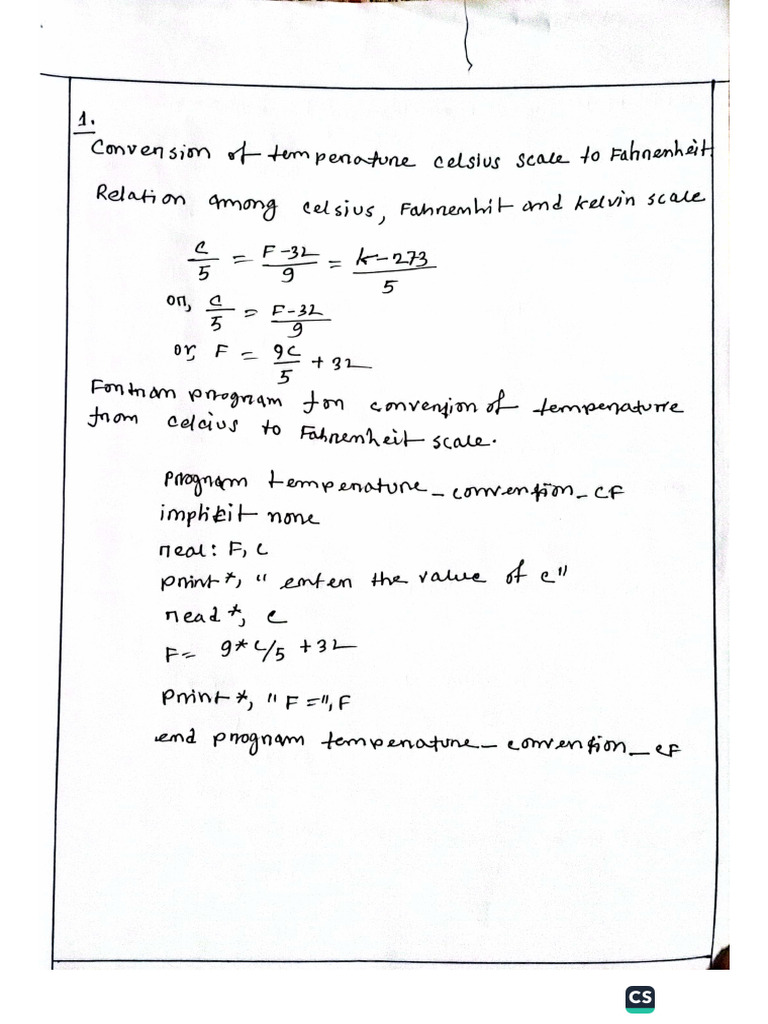 1.
Convension of temperature celsius scale to Fahrenheit
Relation among celsius, Fahrenhit and kelvin scale
C/5 = F-32/9 = k-273/5
or, C/5 = F-32/9
or, F = 9C/5 + 32
Fortran program for convension of temperature
from celcius to Fahrenheit scale.
program temperature_convention_CF
implicit none
real: F, C
print*, " enter the value of c"
read *, C
F= 9*C/5 +32
print *, " F =", F
end program temperature_convention_CF
CS